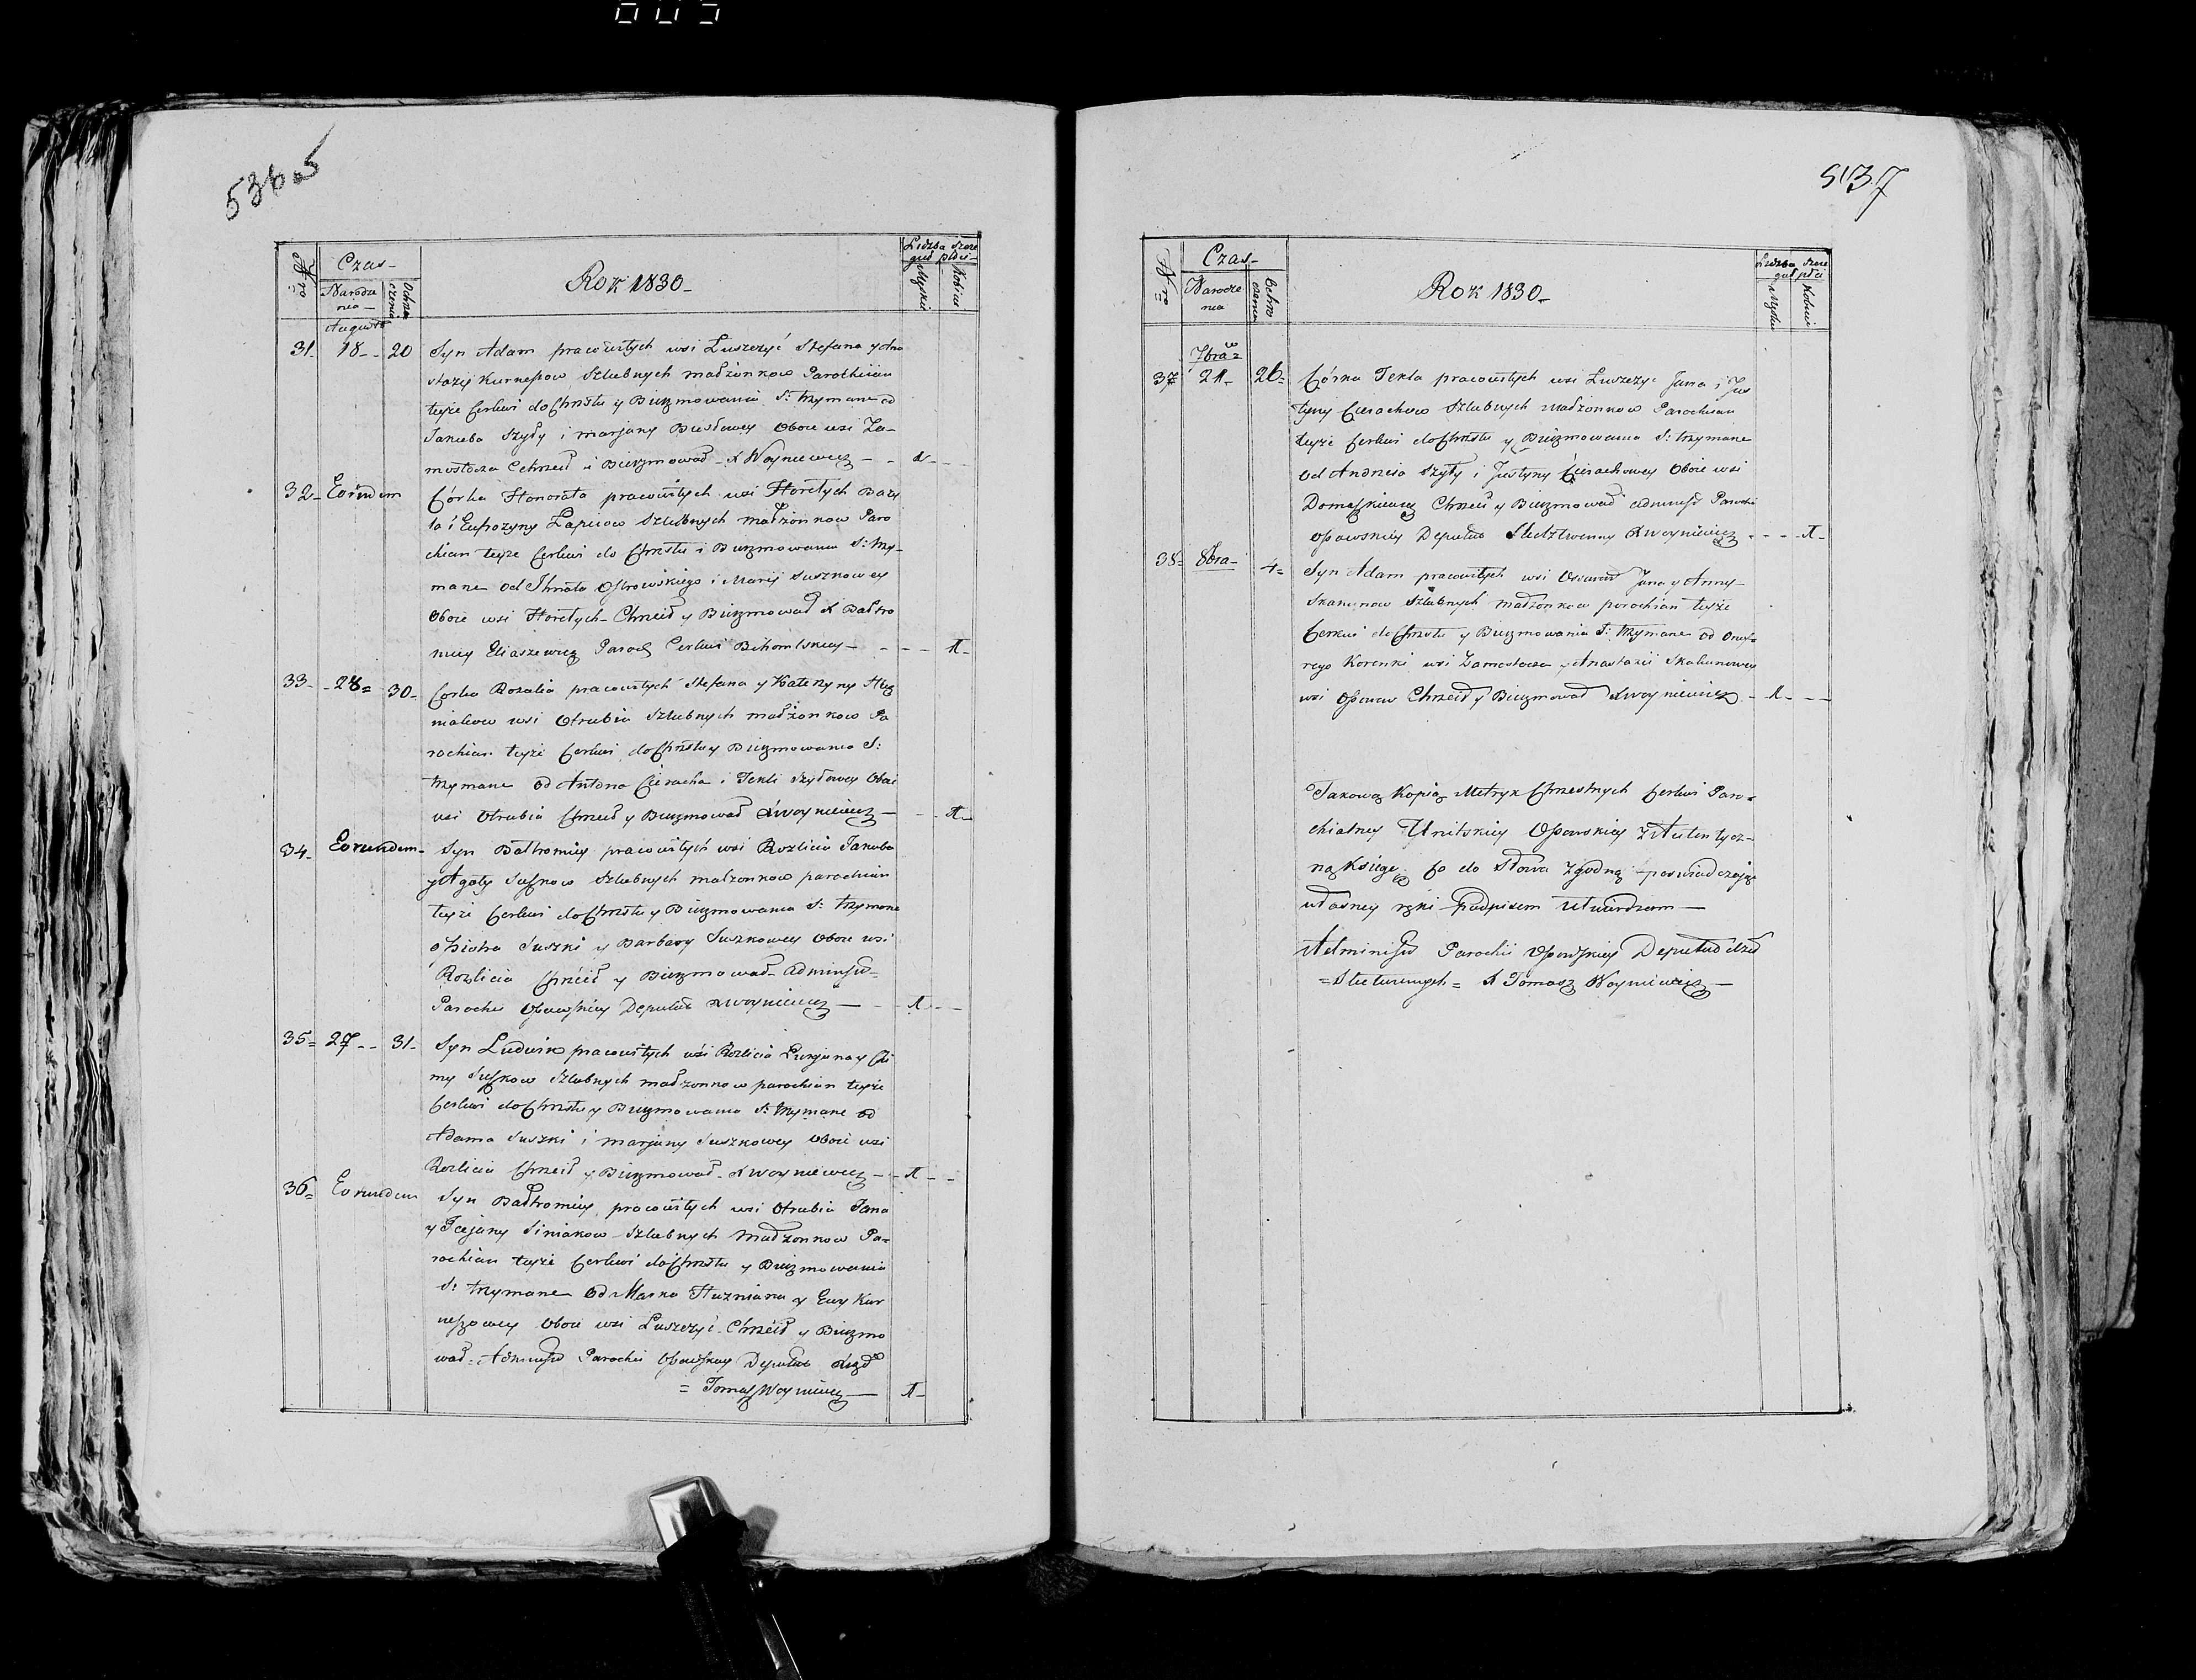 5365
Nro
Czas
Narodzenia
Ochrzczenia
Rok 1830
Liczba Szczegul płci
Męzkiej
Kobiet
Augusta
31 18 20 Syn Adam pracowitych wsi Łuszczyć Stefana y Ana
stazyi Kurneszow Szlubnych małżonkow Parochian
teyże Cerkwi do Chrztu y Bierzmowania S: trzymane od
Jakuba Szyły i Marjany Busłowey Oboie wsi Za
mostocza Chrzcił i Bierzmował X Woyniewicz 1
32 Eorundem Córka Honorata pracowitych wsi Horełych Bazy
la i Eufrozyny Łapciow Szlubnych małżonkow Paro
chian teyże Cerkwi do Chrztu i Bierzmowania S: trzy
mane od Ihnata Ostrowskiego i Maryi Suszkowey
Oboie wsi Horełych Chrzcił y Bierzmował X Bałtro
miey Eliaszewicz Paroch Cerkwi 1
33 28 30 Corka Rozalia pracowitych Stefana y Katerzyny
wsi Otrubia Szlubnych małżonkow Pa
rochian teyże Cerkwi do Chrztu y Bierzmowania S:
trzymane od Antona Cieracha i Tekli Szyłowey Oboie
wsi Otrubia Chrzcił y Bierzmował X Woyniewicz 1
34 Eorundem Syn Bałtromiey pracowitych wsi Rozlicia Jakuba
y Agaty Suszkow Szlubnych malżonkow parochian
teyże Cerkwi do Chrztu y Bierzmowania S: trzymane
o Piotra Suszki y Barbary Suszkowey Oboie wsi
Rozlicia Chrzcił y Bierzmował
Parochii Deputat X Woyniewicz 1
35 27 31 Syn Ludwik pracowitych wsi Rozlicia Łukjana y Chi
my Suszkow Szlubnych małżonkow parochian teyże
Cerkwi do Chrztu y Bierzmowania S: trzymane od
Adama Suszki i Marjany Suszkowey Oboie wsi
Rozlicia Chrzcił y Bierzmował X Woyniewicz 1
36 Eorundem Syn Bałtromiey pracowitych wsi Otrubia Jana
y Tacjany Siniakow Szlubnych Małżonkow Pa
rochian teyże Cerkwi do Chrztu y Bierzmowania
S: trzymane od Marka Huzniaka y Ewy Kur
neszowey Oboie wsi Łuszczyć Chrzcił y Bierzmo
wał Parochii Deputat
Tomasz Woyniewicz 1
537
Nro
Czas
Narodzenia
Ochrzczenia
Rok 1830
Liczba Szczegul płci
Męzkiej
Kobiet
7bra
37 21 26 Córka Tekla pracowitych wsi Łuszczyć Jana i Jus
tyny Cierachow Szlubnych Małżonkow Parochian
teyże Cerkwi do Chrztu y Bierzmowania S: trzymane
od Andrzeia Szyły i Justyny Cierachowey Oboie wsi
Chrzcił y Bierzmował Parochii
Deputat X Woyniewicz 1
38 8bra 4 Syn Adam pracowitych wsi Jana y Anny
Skakunow Szlubnych małżonkow parochian teyże
Cerkwi do Chrztu y Bierzmowania S: trzymane od
Korenki wsi Zamostocza y Anastazii Skakunowey
wsi Chrzcił y Bierzmował X Woyniewicz 1
Takową Kopią Metryk Chrzestnych Cerkwi Paro
chialney Unitskiey z Autentycz
ną Księgą Co do Słowa Zgodną poswiadczając
własney ręki podpisem Utwierdzam
Parochii Deputat
X Tomasz Woyniewicz